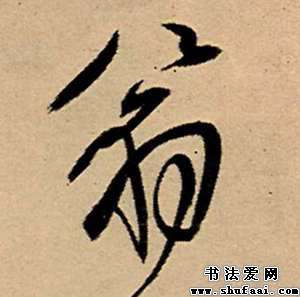 翁
书法爱网
www.shufaai.com